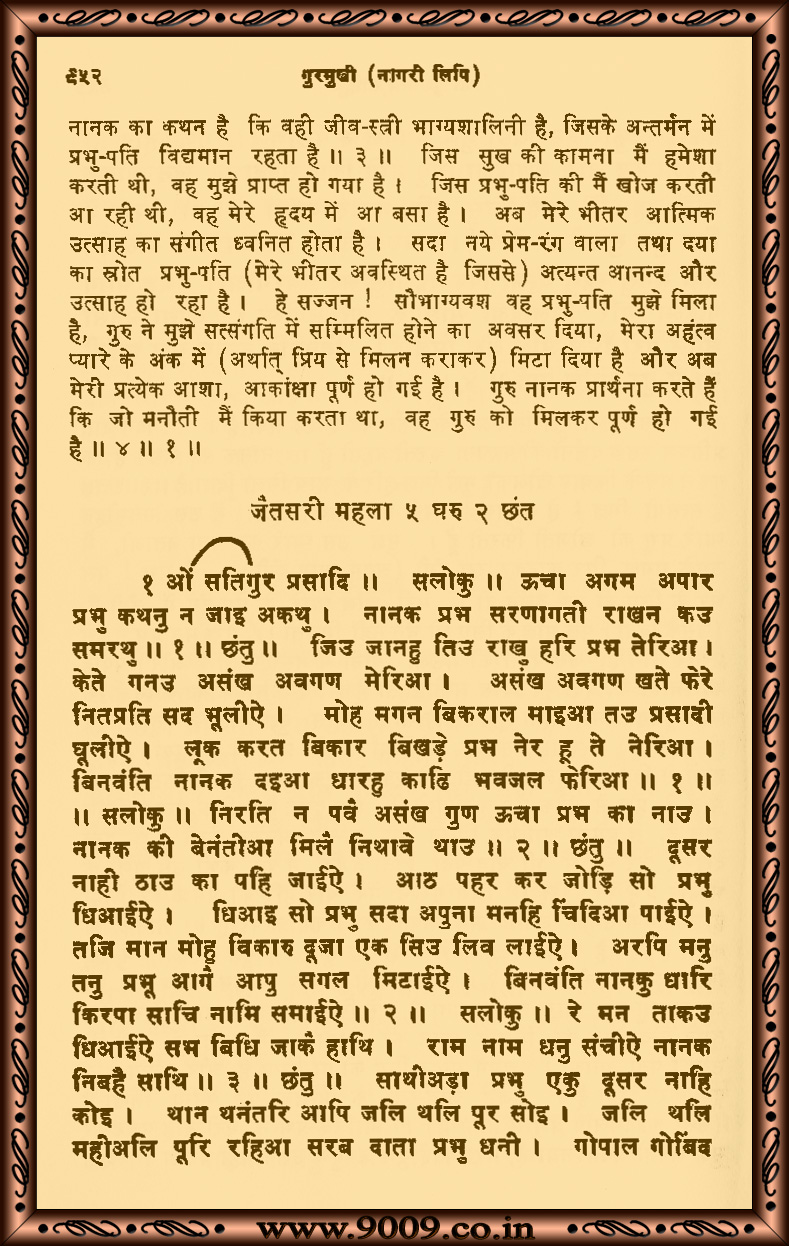 ९५२ गुरमुखी (नागरी लिपि)
नानक का कथन है कि वही जीव-स्त्री भाग्यशालिनी है, जिसके अन्तर्मन में
प्रभु-पति विद्यमान रहता है ॥ ३ ॥ जिस सुख की कामना मैं हमेशा
करती थी, वह मुझे प्राप्त हो गया है । जिस प्रभु-पति की मैं खोज करती
आ रही थी, वह मेरे हृदय में आ बसा है । अब मेरे भीतर आत्मिक
उत्साह का संगीत ध्वनित होता है । सदा नये प्रेम-रंग वाला तथा दया
का स्रोत प्रभु-पति (मेरे भीतर अवस्थित है जिससे) अत्यन्त आनन्द और
उत्साह हो रहा है । हे सज्जन ! सौभाग्यवश वह प्रभु-पति मुझे मिला
है, गुरु ने मुझे सत्संगति में सम्मिलित होने का अवसर दिया, मेरा अहंत्व
प्यारे के अंक में (अर्थात् प्रिय से मिलन कराकर) मिटा दिया है और अब
मेरी प्रत्येक आशा, आकांक्षा पूर्ण हो गई है । गुरु नानक प्रार्थना करते हैं
कि जो मनौती मैं किया करता था, वह गुरु को मिलकर पूर्ण हो गई
है ॥ ४ ॥ १ ॥
जैतसरी महला ५ घरु २ छंत
१ ओं सतिगुर प्रसादि ॥ सलोकु ॥ ऊचा अगम अपार
प्रभु कथनु न जाइ अकथु । नानक प्रभ सरणागती राखन कउ
समरथु ॥ १ ॥ छंतु ॥ जिउ जानहु तिउ राखु हरि प्रभ तेरिआ ।
केते गनउ असंख अवगण मेरिआ । असंख अवगण खते फेरे
नितप्रति सद भूलीऐ । मोह मगन बिकराल माइआ तउ प्रसादी
घूलीऐ । लूक करत बिकार बिखड़े प्रभ नेर हू ते नेरिआ ।
बिनवंति नानक दइआ धारहु काढि भवजल फेरिआ ॥ १ ॥
॥ सलोकु ॥ निरति न पवै असंख गुण ऊचा प्रभ का नाउ ।
नानक की बेनंतीआ मिलै निथावे थाउ ॥ २ ॥ छंतु ॥ दूसर
नाही ठाउ का पहि जाईऐ । आठ पहर कर जोड़ि सो प्रभु
धिआईऐ । धिआइ सो प्रभु सदा अपुना मनहि चिंदिआ पाईऐ ।
तजि मान मोहु विकारु दूजा एक सिउ लिव लाईऐ । अरपि मनु
तनु प्रभू आगै आपु सगल मिटाईऐ । बिनवंति नानकु धारि
किरपा साचि नामि समाईऐ ॥ २ ॥ सलोकु ॥ रे मन ताकउ
धिआईऐ सभ बिधि जाकै हाथि । राम नाम धनु संचीऐ नानक
निबहै साथि ॥ ३ ॥ छंतु ॥ साथीअड़ा प्रभु एकु दूसर नाहि
कोइ । थान थनंतरि आपि जलि थलि पूर सोइ । जलि थलि
महीअलि पूरि रहिआ सरब दाता प्रभु धनी । गोपाल गोबिंद
www.9009.co.in